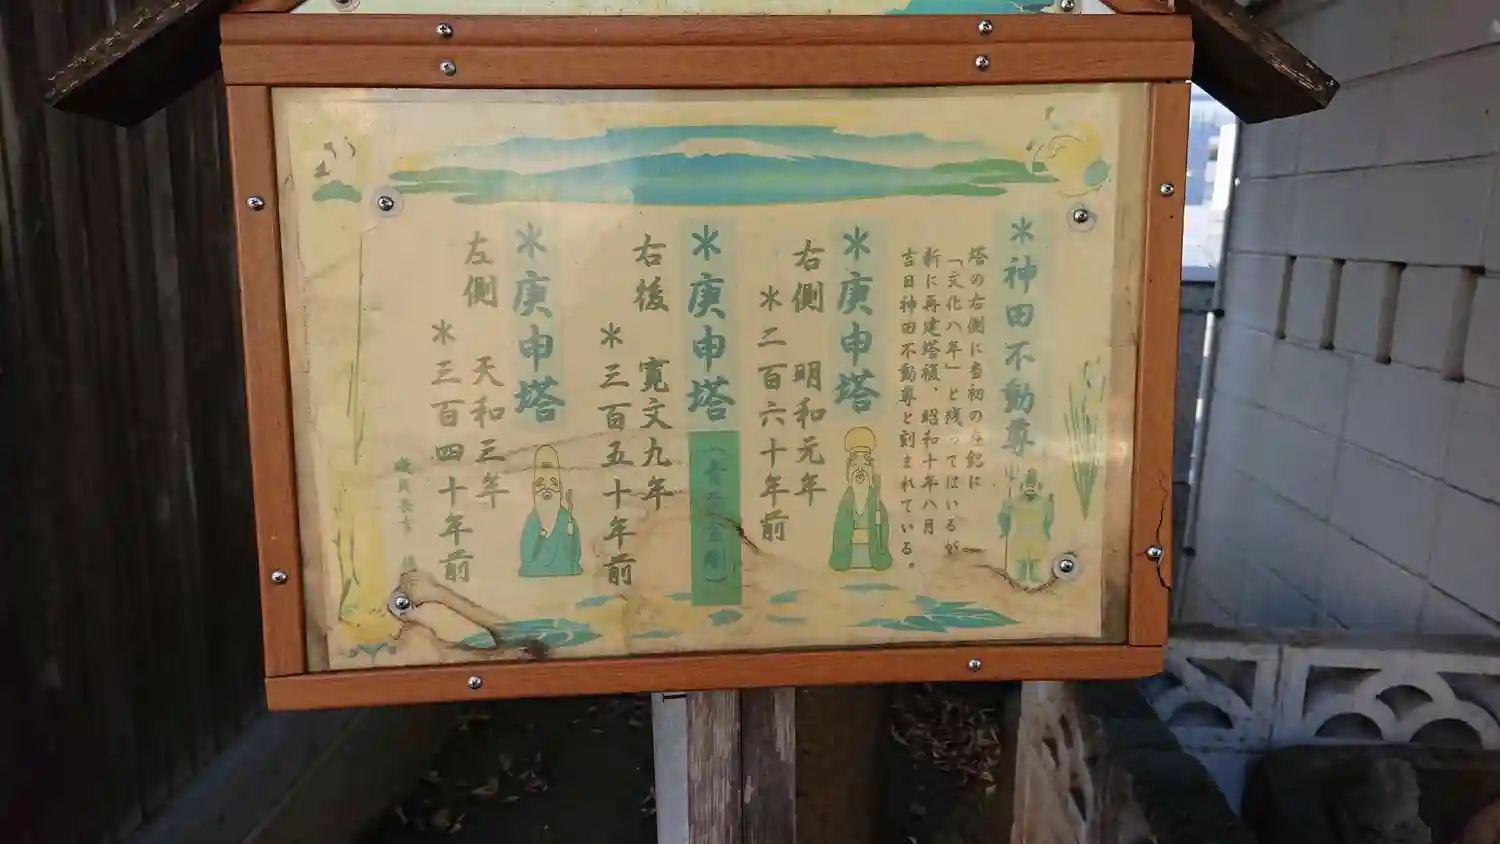 *神田不動尊
塔の右側に当初の
「文化八年」と残ってはいるが
新に再建塔積、昭和十年八月
吉日神田不動尊と刻まれている。
*庚申塔
右側 明和元年
*二百六十年前
*庚申塔(青面金剛)
右後 寛文九年
*三百五十年前
*庚申塔
左側 天和三年
*三百四十年前